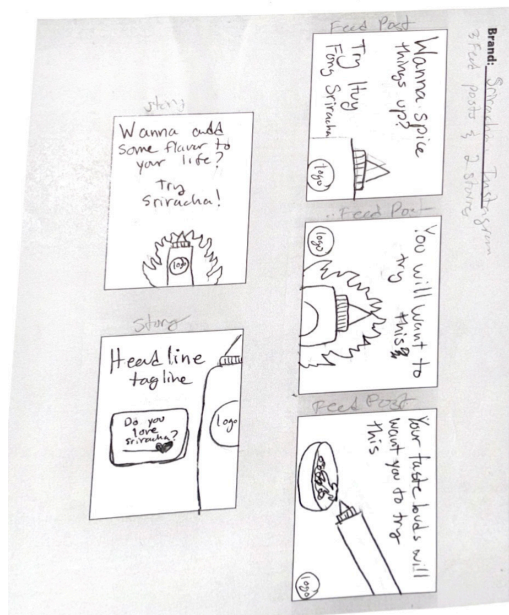 Brand: Sriracha Instagram
3 Feed posts & 2 stories
Feed Post
Wanna spice
things up?
Try Huy
Fong Sriracha
logo
Feed Post
You will want to
try this
logo
Feed Post
Your taste buds will
want you to try
this
logo
Story
Wanna add
some flavor to
your life?
Try
Sriracha!
logo
Story
Headline
tagline
Do you
love
sriracha?
logo